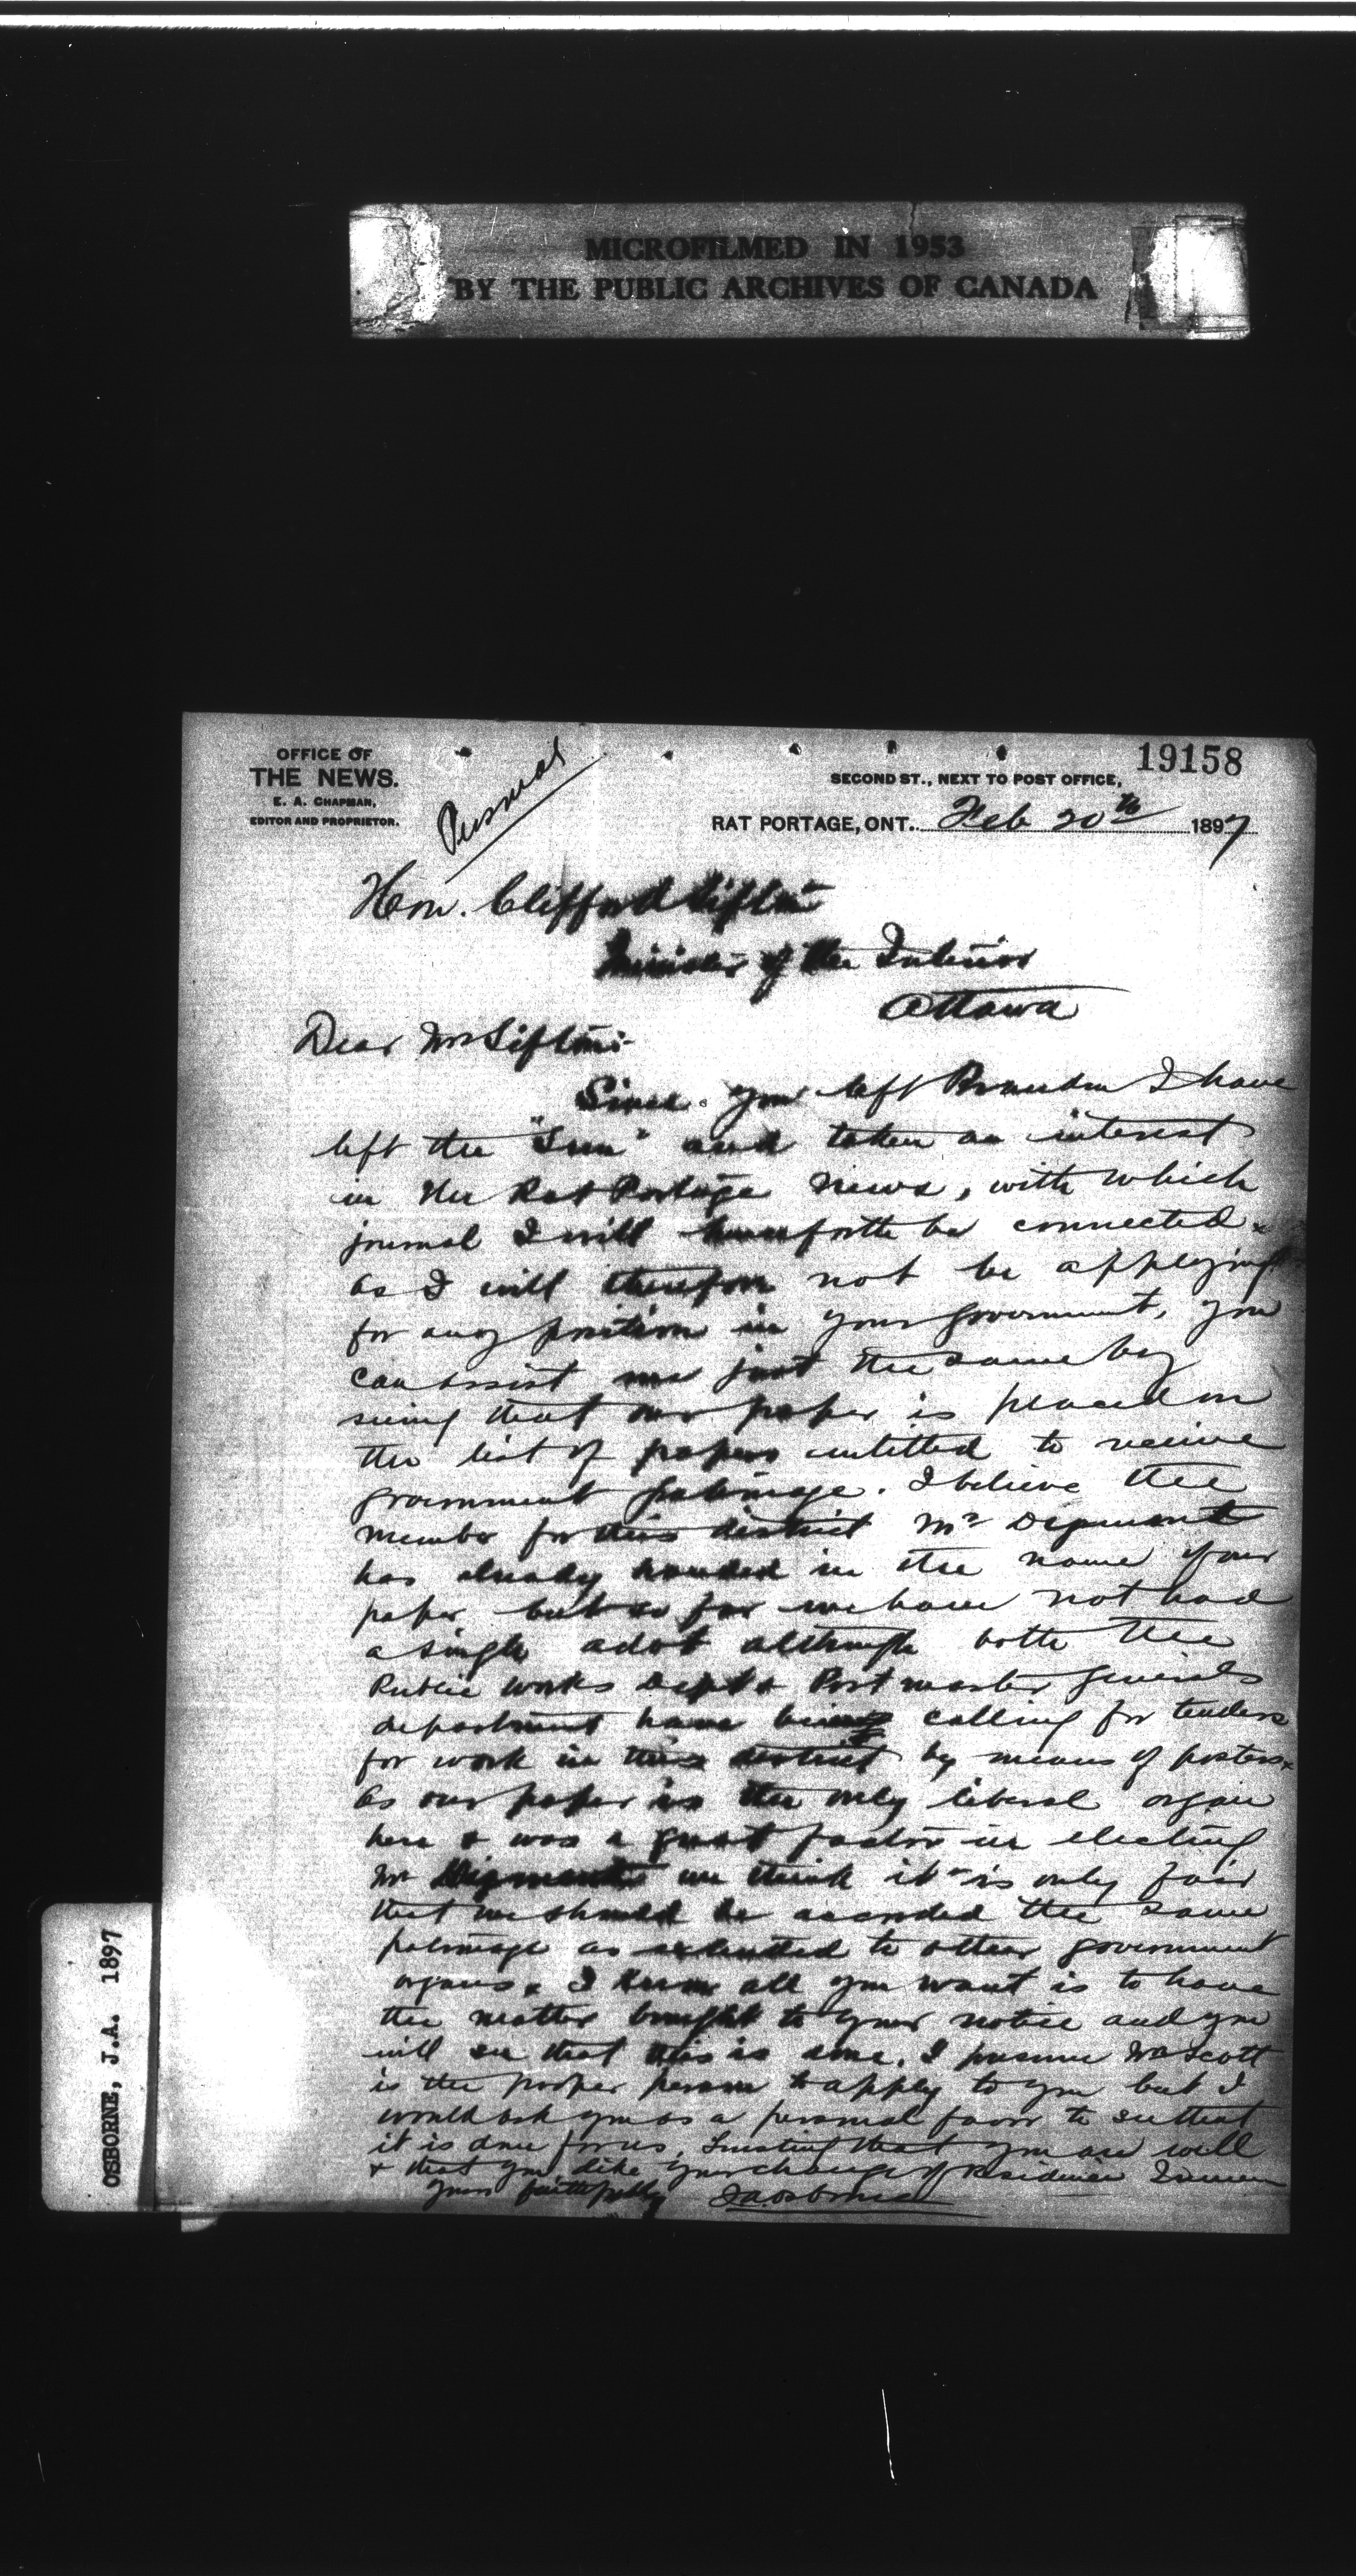 MICROFILMED IN 1953
BY THE PUBLIC ARCHIVES OF CANADA
19158
OFFICE OF
THE NEWS.
E. A. CHAPMAN,
EDITOR AND PROPRIETOR.
Personal
SECOND ST., NEXT TO POST OFFICE,
RAT PORTAGE, ONT. Feb 20th 1897
Hon. Clifford Sifton
Minister of the Interior
Ottawa
Dear Mr Sifton:-
Since you left Brandon I have
left the "Sun" and taken an interest
in the Rat Portage News, with which
journal I will henceforth be connected &
as I will therefore not be applying
for any position in your government, you
can assist me just the same by
seeing that our paper is placed on
the list of papers entitled to receive
government patronage. I believe the
member for this district Mr Dymont
has already handed in the name of our
paper but so far we have not had
a single advt although both the
Public works Dept & Post master Generals
department have being calling for tenders
for work in this district by means of posters &
as our paper is the only liberal organ
here & was a great factor in electing
Mr Dymont we think it is only fair
that we should be accorded the same
patronage as extended to other government
organs. I know all you want is to have
the matter brought to your notice and you
will see that this is done. I presume Mr Scott
is the proper person to apply to you but I
would ask you as a personal favor to see that
it is done for us. Trusting that you are well
& that you like your change of residence I remain
yours faithfully J.A. Osborne
OSBORNE, J.A. 1897